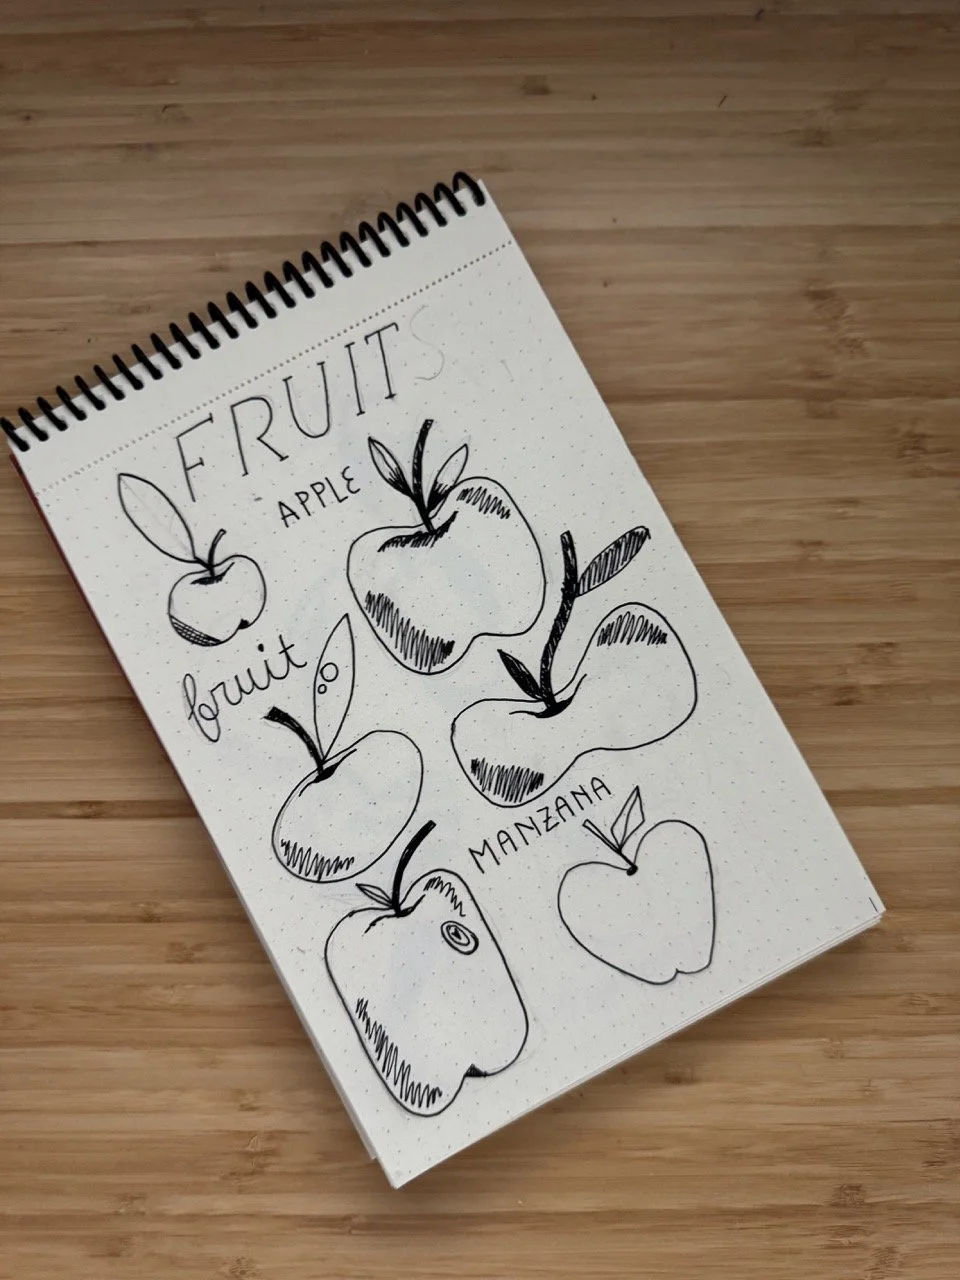 FRUITS
APPLE
fruit
MANZANA